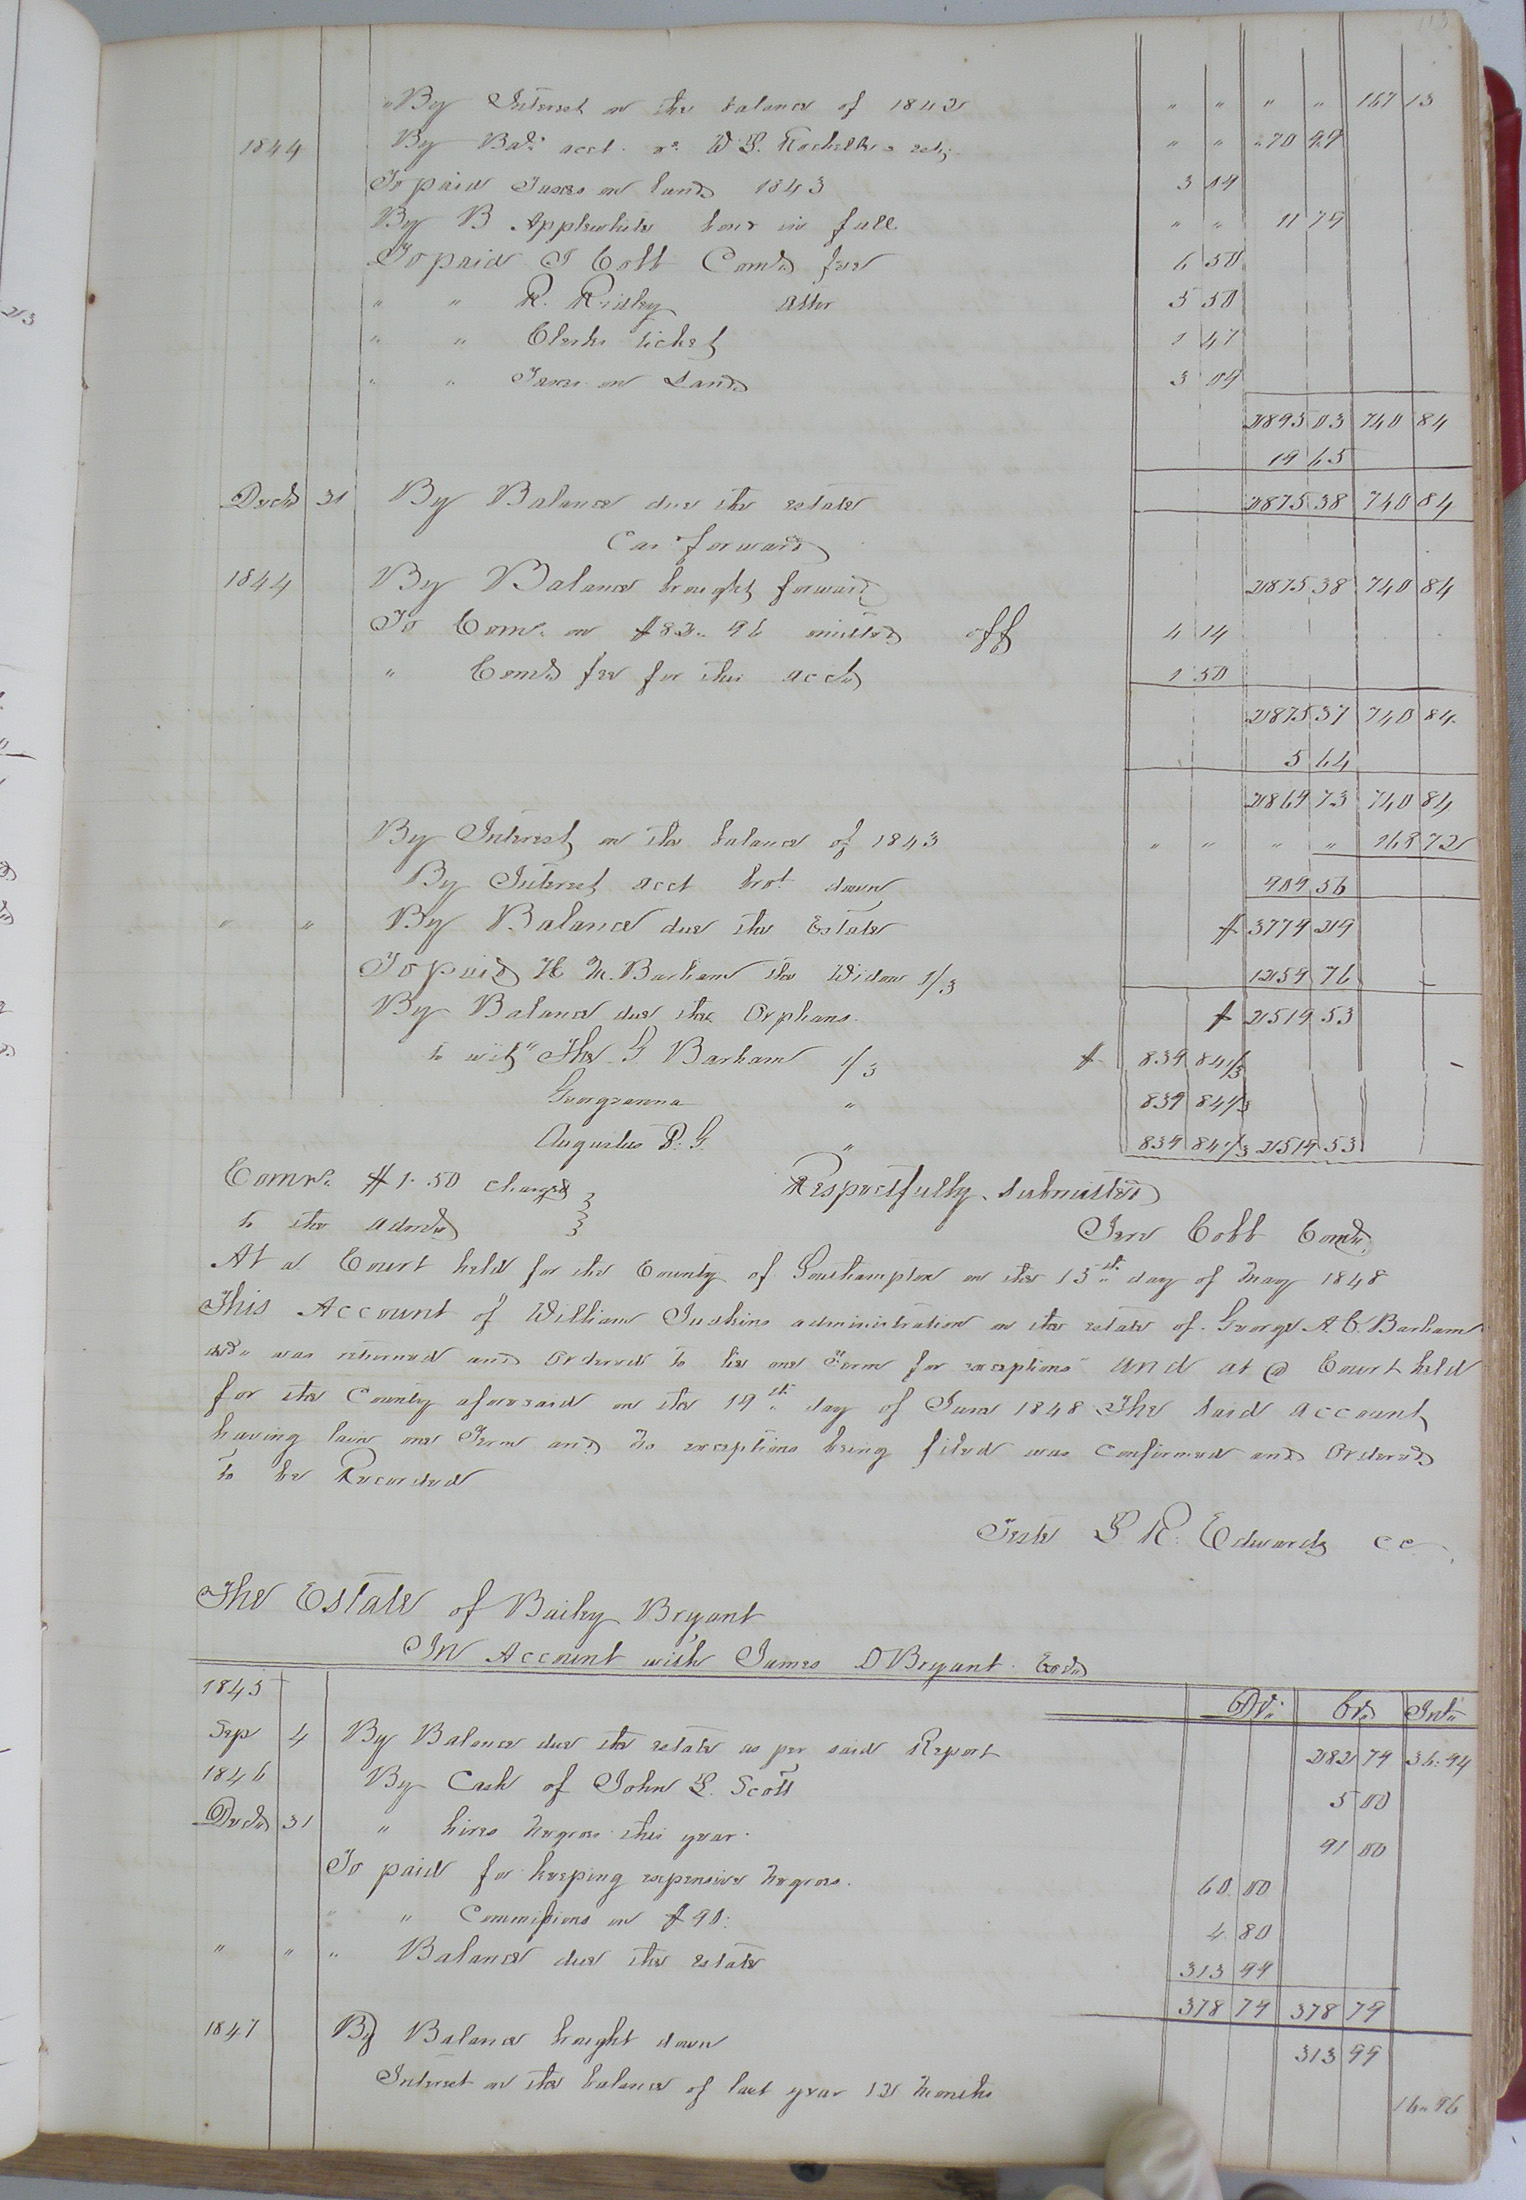 113
" By Interest on the balance of 1842 " " " " 167 13
1844 By Bal: acct. W. L. " " 270 99
To paid Taxes on land 1843 3 09
By B Applewhite in full " " 11 79
To paid J Cobb Comr. fee 6 50
" " R. Ridley atto 5 50
" " Clerks ticket 1 47
" " Taxes on Land 3 09
2895 03 740 84
19 65
Decr 31 By Balance due the estate 2875 38 740 84
Car forward
1844 By Balance brought forward 2875 38 740 84
To Com. on $82.. 96 omitted off 4 14
" Comr fee for this acct 1 50
2875 37 740 84
5 64
2869 73 740 84
By Interest on the balance of 1843 " " " " 168 72
By Interest acct brot down 909 56
" " By Balance due the Estate $ 3779 29
To paid H. M. Barham the Widow 1/3 1259 76
By Balance due the Orphans. $ 2519 53
to wit" Tho G Barham 1/3 $ 839 84 1/3
Georgeanna " 839 84 1/3
Augustus P. G. " 839 84 1/3 2519 53
Comr. $1.50 charged Respectfully submitted
to the admr Jere Cobb Comr
At a Court held for the County of Southampton on the 15th day of May 1848
This Account of William Juskins administration on the estate of George A. C. Barham
decd was returned and Ordered to lie one Term for exceptions and at a Court held
for the County aforesaid on the 19th day of June 1848 The said account
having lain one Term and no exceptions being filed was confirmed and Ordered
to be Recorded
Teste L. R. Edwards cc
The Estate of Bailey Bryant
In Account with James D Bryant Exor
1845 Dr. Cr. Int.
Sep 4 By Balance due the estate as per said Report 282 79 36.94
1846 By Cash of John L. Scott 5 00
Decr 31 " hires Negroes this year. 91 00
To paid for keeping expensive Negroes. 60 00
" " Commissions on $90: 4 80
" " " Balance due the estate 313 99
378 79 378 79
1847 By Balance brought down 313 99
Interest on the balance of last year 12 Months 16.96